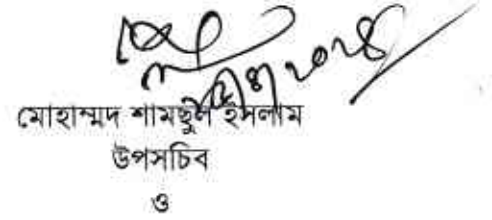 মোহাম্মদ শামছুল ইসলাম
উপসচিব
ও